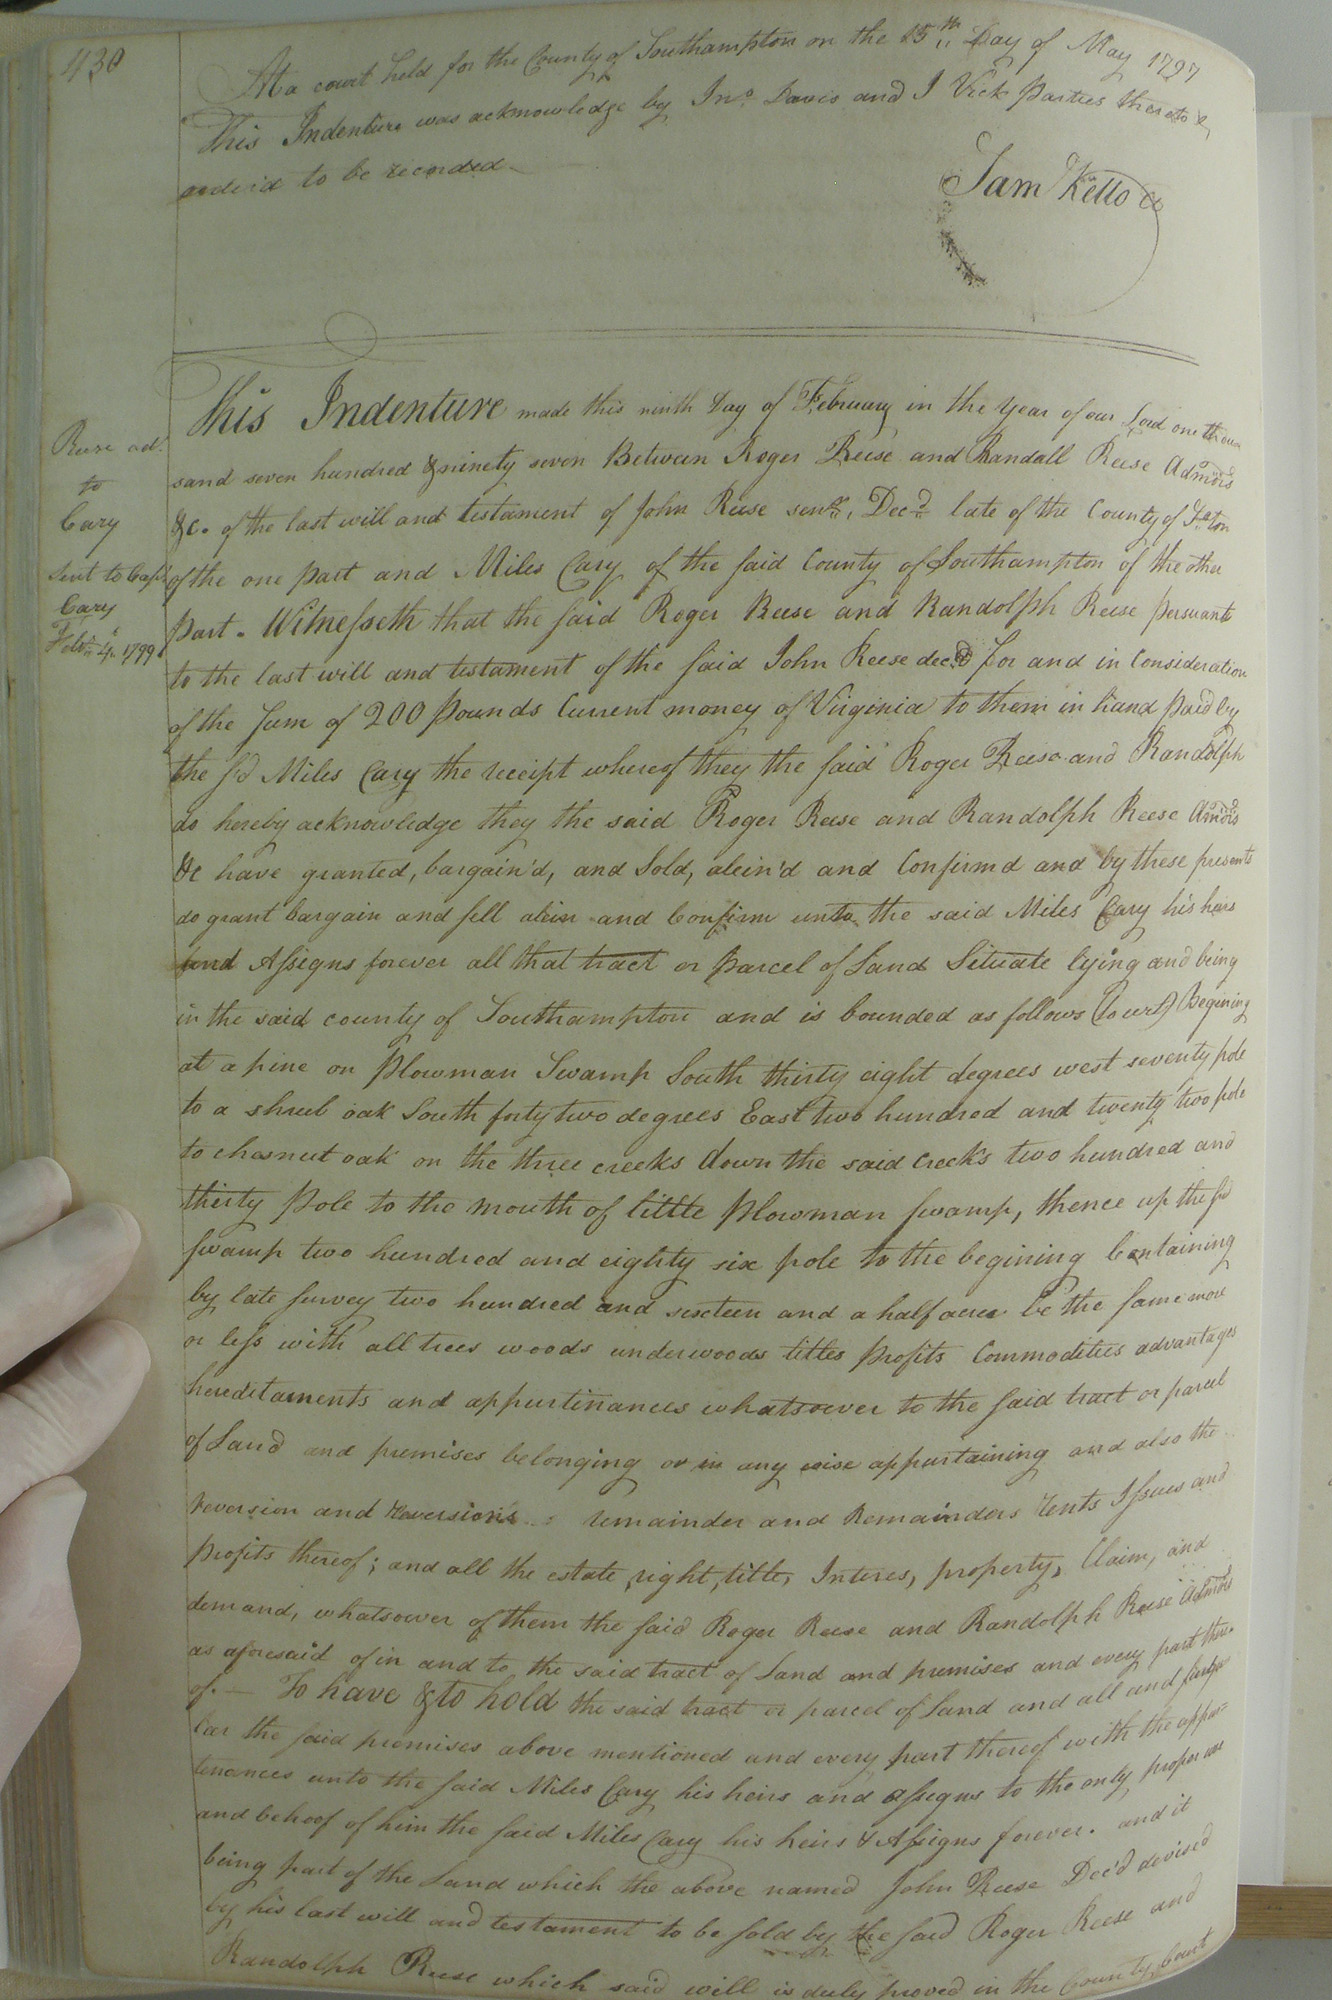 430
At a court held for the County of Southampton on the 15th Day of May 1797
This Indenture was acknowledge by Jno. Davis and J Vick parties thereto &
orderd to be recorded
Sam Kello Cl
Reese adr.
to
Cary
sent to Capt
Cary
Feby. 4. 1799
This Indenture made this ninth Day of February in the Year of our Lord one thou
sand seven hundred & ninety seven Between Roger Reese and Randall Reese Admors
&c. of the last will and testament of John Reese senr. Decd late of the County of So.ton
of the one part and Miles Cary of the said County of Southampton of the other
part. Witnesseth that the said Roger Reese and Randolph Reese persuant
to the last will and testament of the said John Reese decd for and in Consideration
of the Sum of 200 pounds Current money of Virginia to them in hand paid by
the sd Miles Cary the receipt whereof they the said Roger Reese and Randolph
do hereby acknowledge they the said Roger Reese and Randolph Reese Amors
&c have granted, bargain'd, and Sold, alein'd and Confirmd and by these presents
do grant bargain and sell alein and Confirm unto the said Miles Cary his heirs
and Assigns forever all that tract or parcel of Land Situate lying and being
in the said county of Southampton and is bounded as follows (to wit) Begining
at a pine on Plowman Swamp South thirty eight degrees west seventy pole
to a shrub oak South forty two degrees East two hundred and twenty two pole
to chasnut oak on the three creeks down the said Creeks two hundred and
thirty Pole to the mouth of little Plowman swamp, thence up the sd
swamp two hundred and eighty six pole to the begining Containing
by late survey two hundred and sixteen and a half acres be the same more
or less with all trees woods underwoods titles profits Commodities advantages
hereditaments and appurtinances whatsoever to the said tract or parcel
of Land and premises belonging or in any wise appurtaining and also the
reversion and reversions remainder and Remainders rents Issues and
profits thereof; and all the estate, right, title, Interes, property, Claim, and
demand, whatsower of them the said Roger Reese and Randolph Reese Admors
as aforesaid of in and to the said tract of Land and premises and every part there
of.— To have & to hold the said tract or parcel of Land and all and singu
lar the said premises above mentioned and every part thereof with the appur=
tenances unto the said Miles Cary his heirs and assigns to the only proper use
and behoof of him the said Miles Cary his heirs & Assigns forever. and it
being part of the Land which the above named John Reese Dec'd devised
by his last will and testament to be sold by the said Roger Reese and
Randolph Reese which said will is duly proved in the County Court